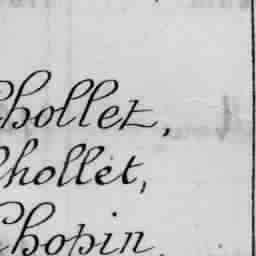 Chollet,
Chollet,
Chopin.